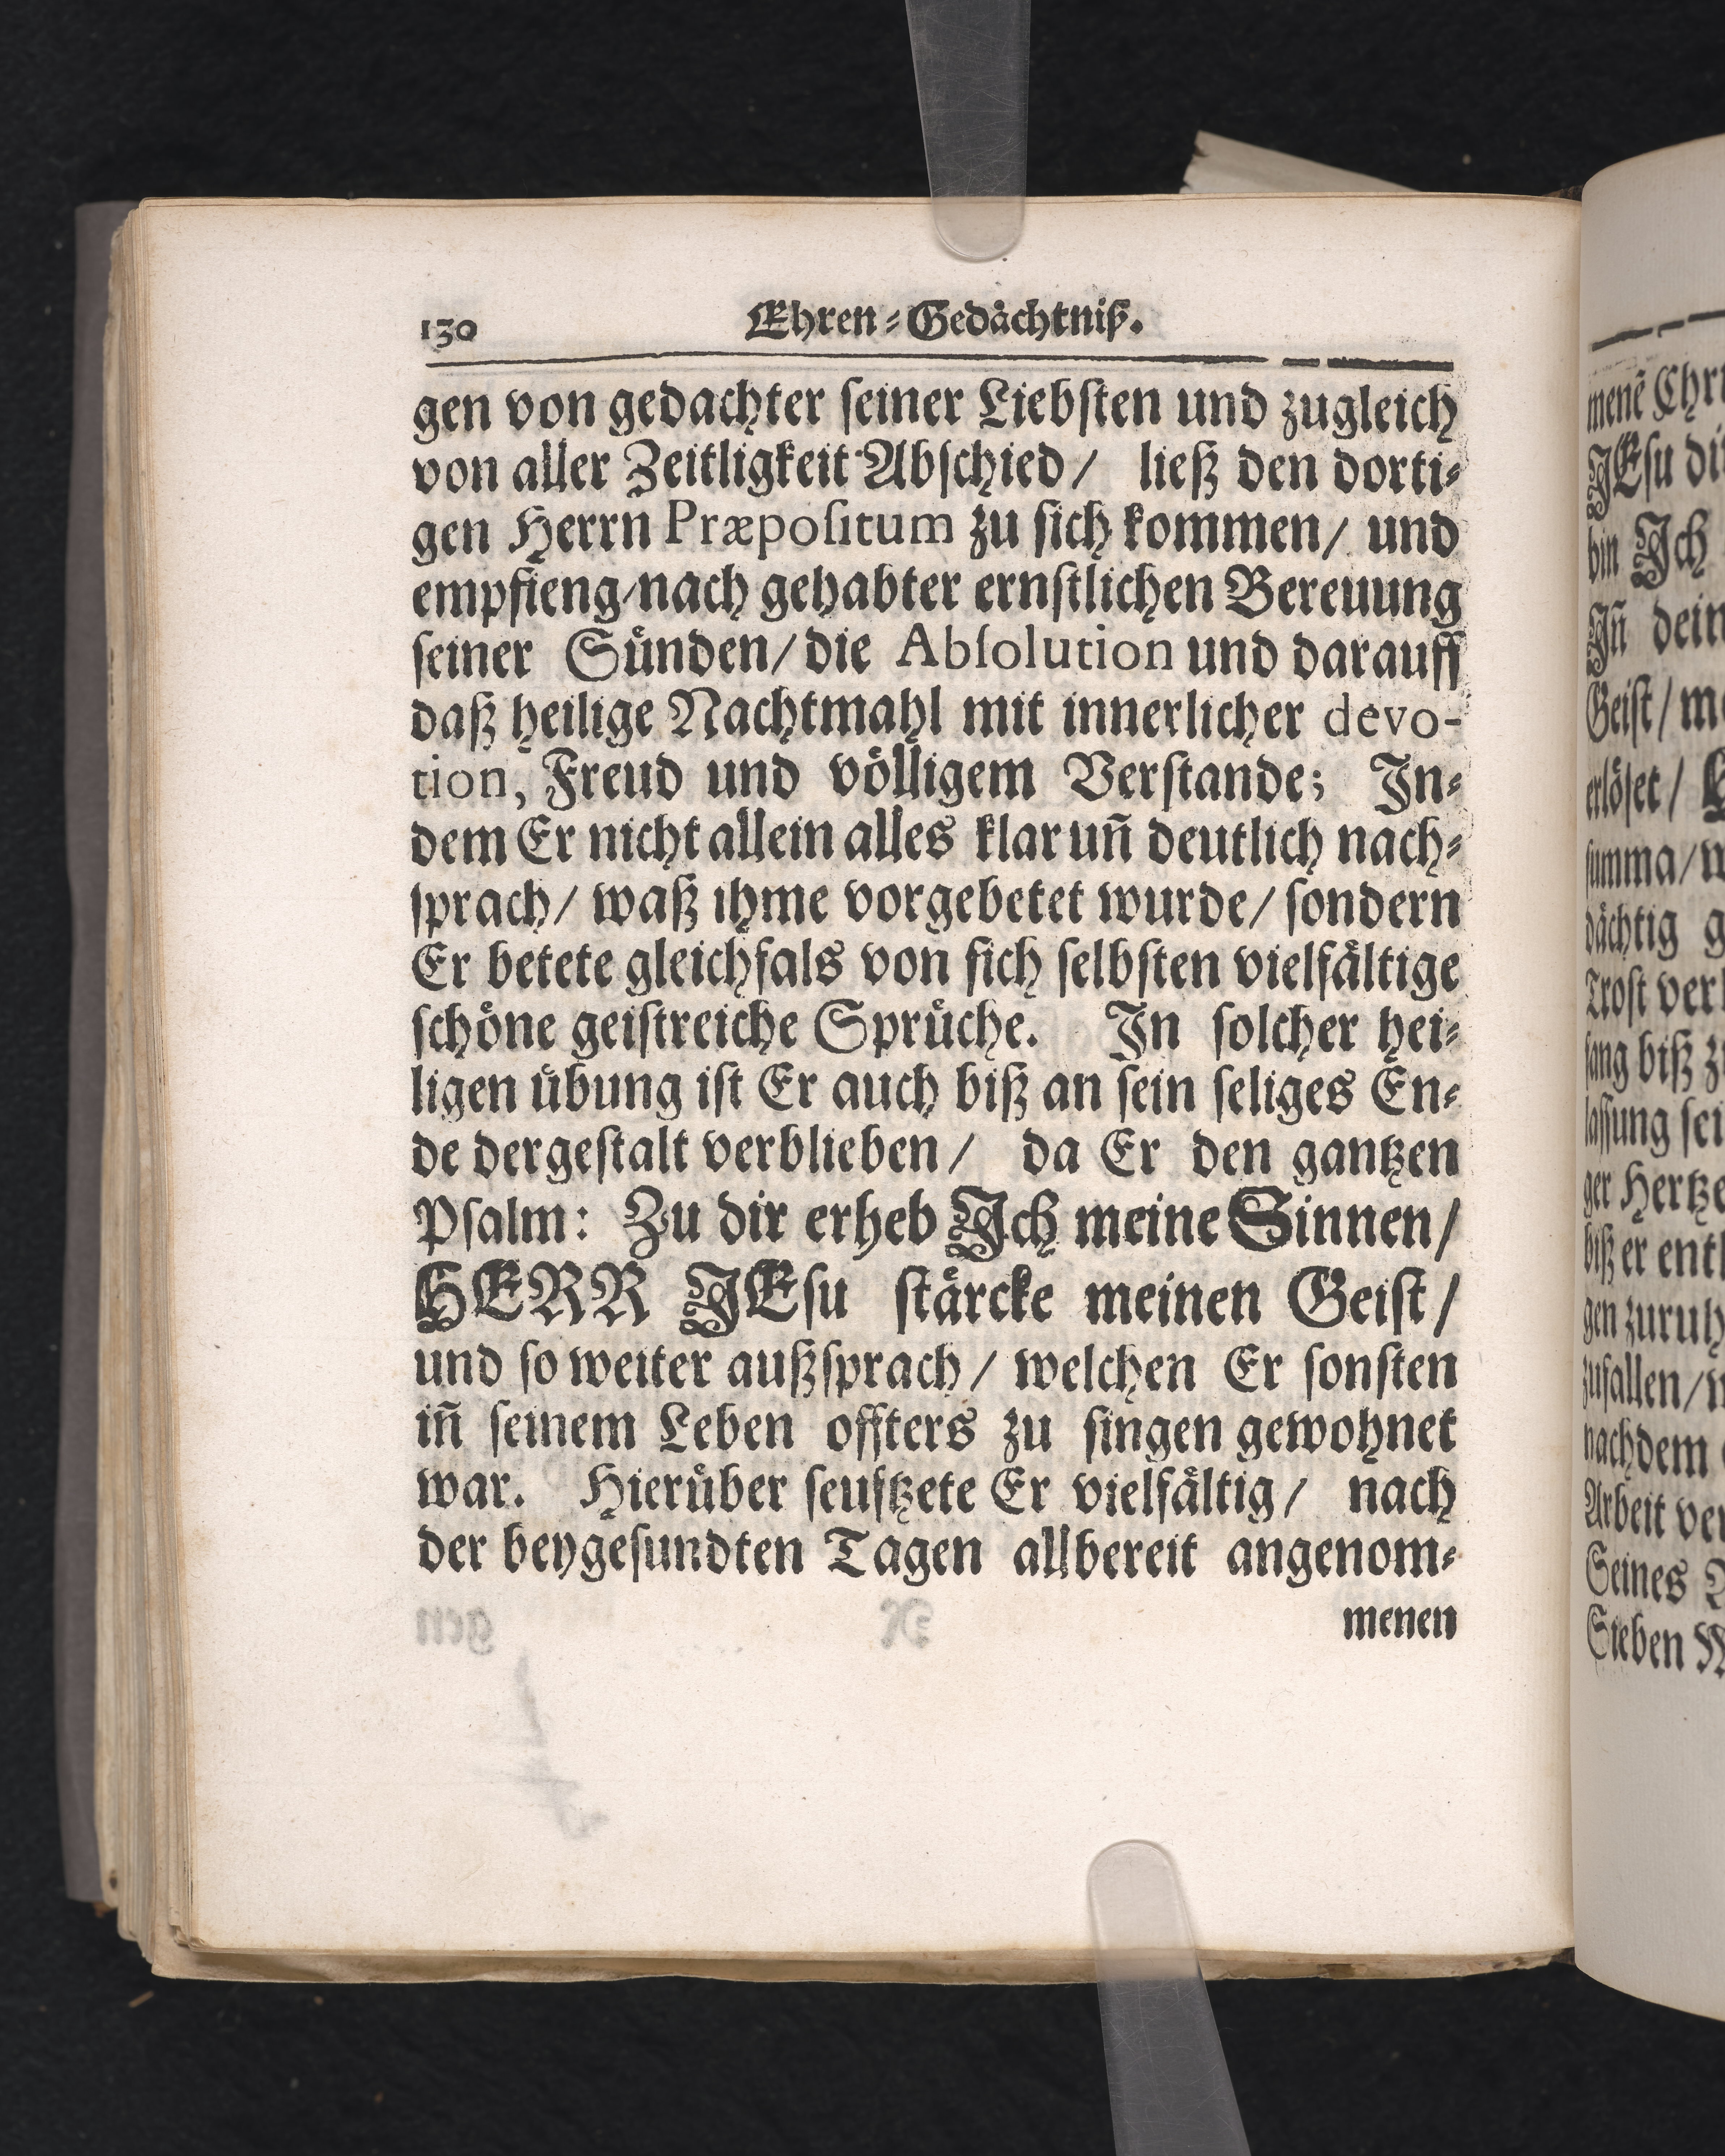 130 Ehren-Gedächtniß.
gen von gedachter seiner Liebsten und zugleich
von aller Zeitligkeit Abschied/ ließ den dorti-
gen Herrn Præpositum zu sich kommen/ und
empfieng/nach gehabter ernstlichen Bereuung
seiner Sünden/die Absolution und darauff
daß heilige Nachtmahl mit innerlicher devo-
tion, Freud und völligem Verstande; In-
dem Er nicht allein alles klar uñ deutlich nach-
sprach/ waß ihme vorgebetet wurde/ sondern
Er betete gleichfals von sich selbsten vielfältige
schöne geistreiche Sprüche. In solcher hei-
ligen übung ist Er auch biß an sein seliges En-
de dergestalt verblieben/ da Er den gantzen
Psalm: Zu dir erheb Ich meine Sinnen/
HERR JEsu stärcke meinen Geist/
und so weiter außsprach/ welchen Er sonsten
iñ seinem Leben offters zu singen gewohnet
war. Hierüber seuftzete Er vielfältig/ nach
der beygesundten Tagen allbereit angenom-
menen
menẽ
JEsu
bin Ich
Iñ
Geist/
erlöset/
summa/
dächtig
Trost
sang biß
lassung
ger
biß er
gen
zufallen/
nachdem
Arbeit
Seines
Sieben